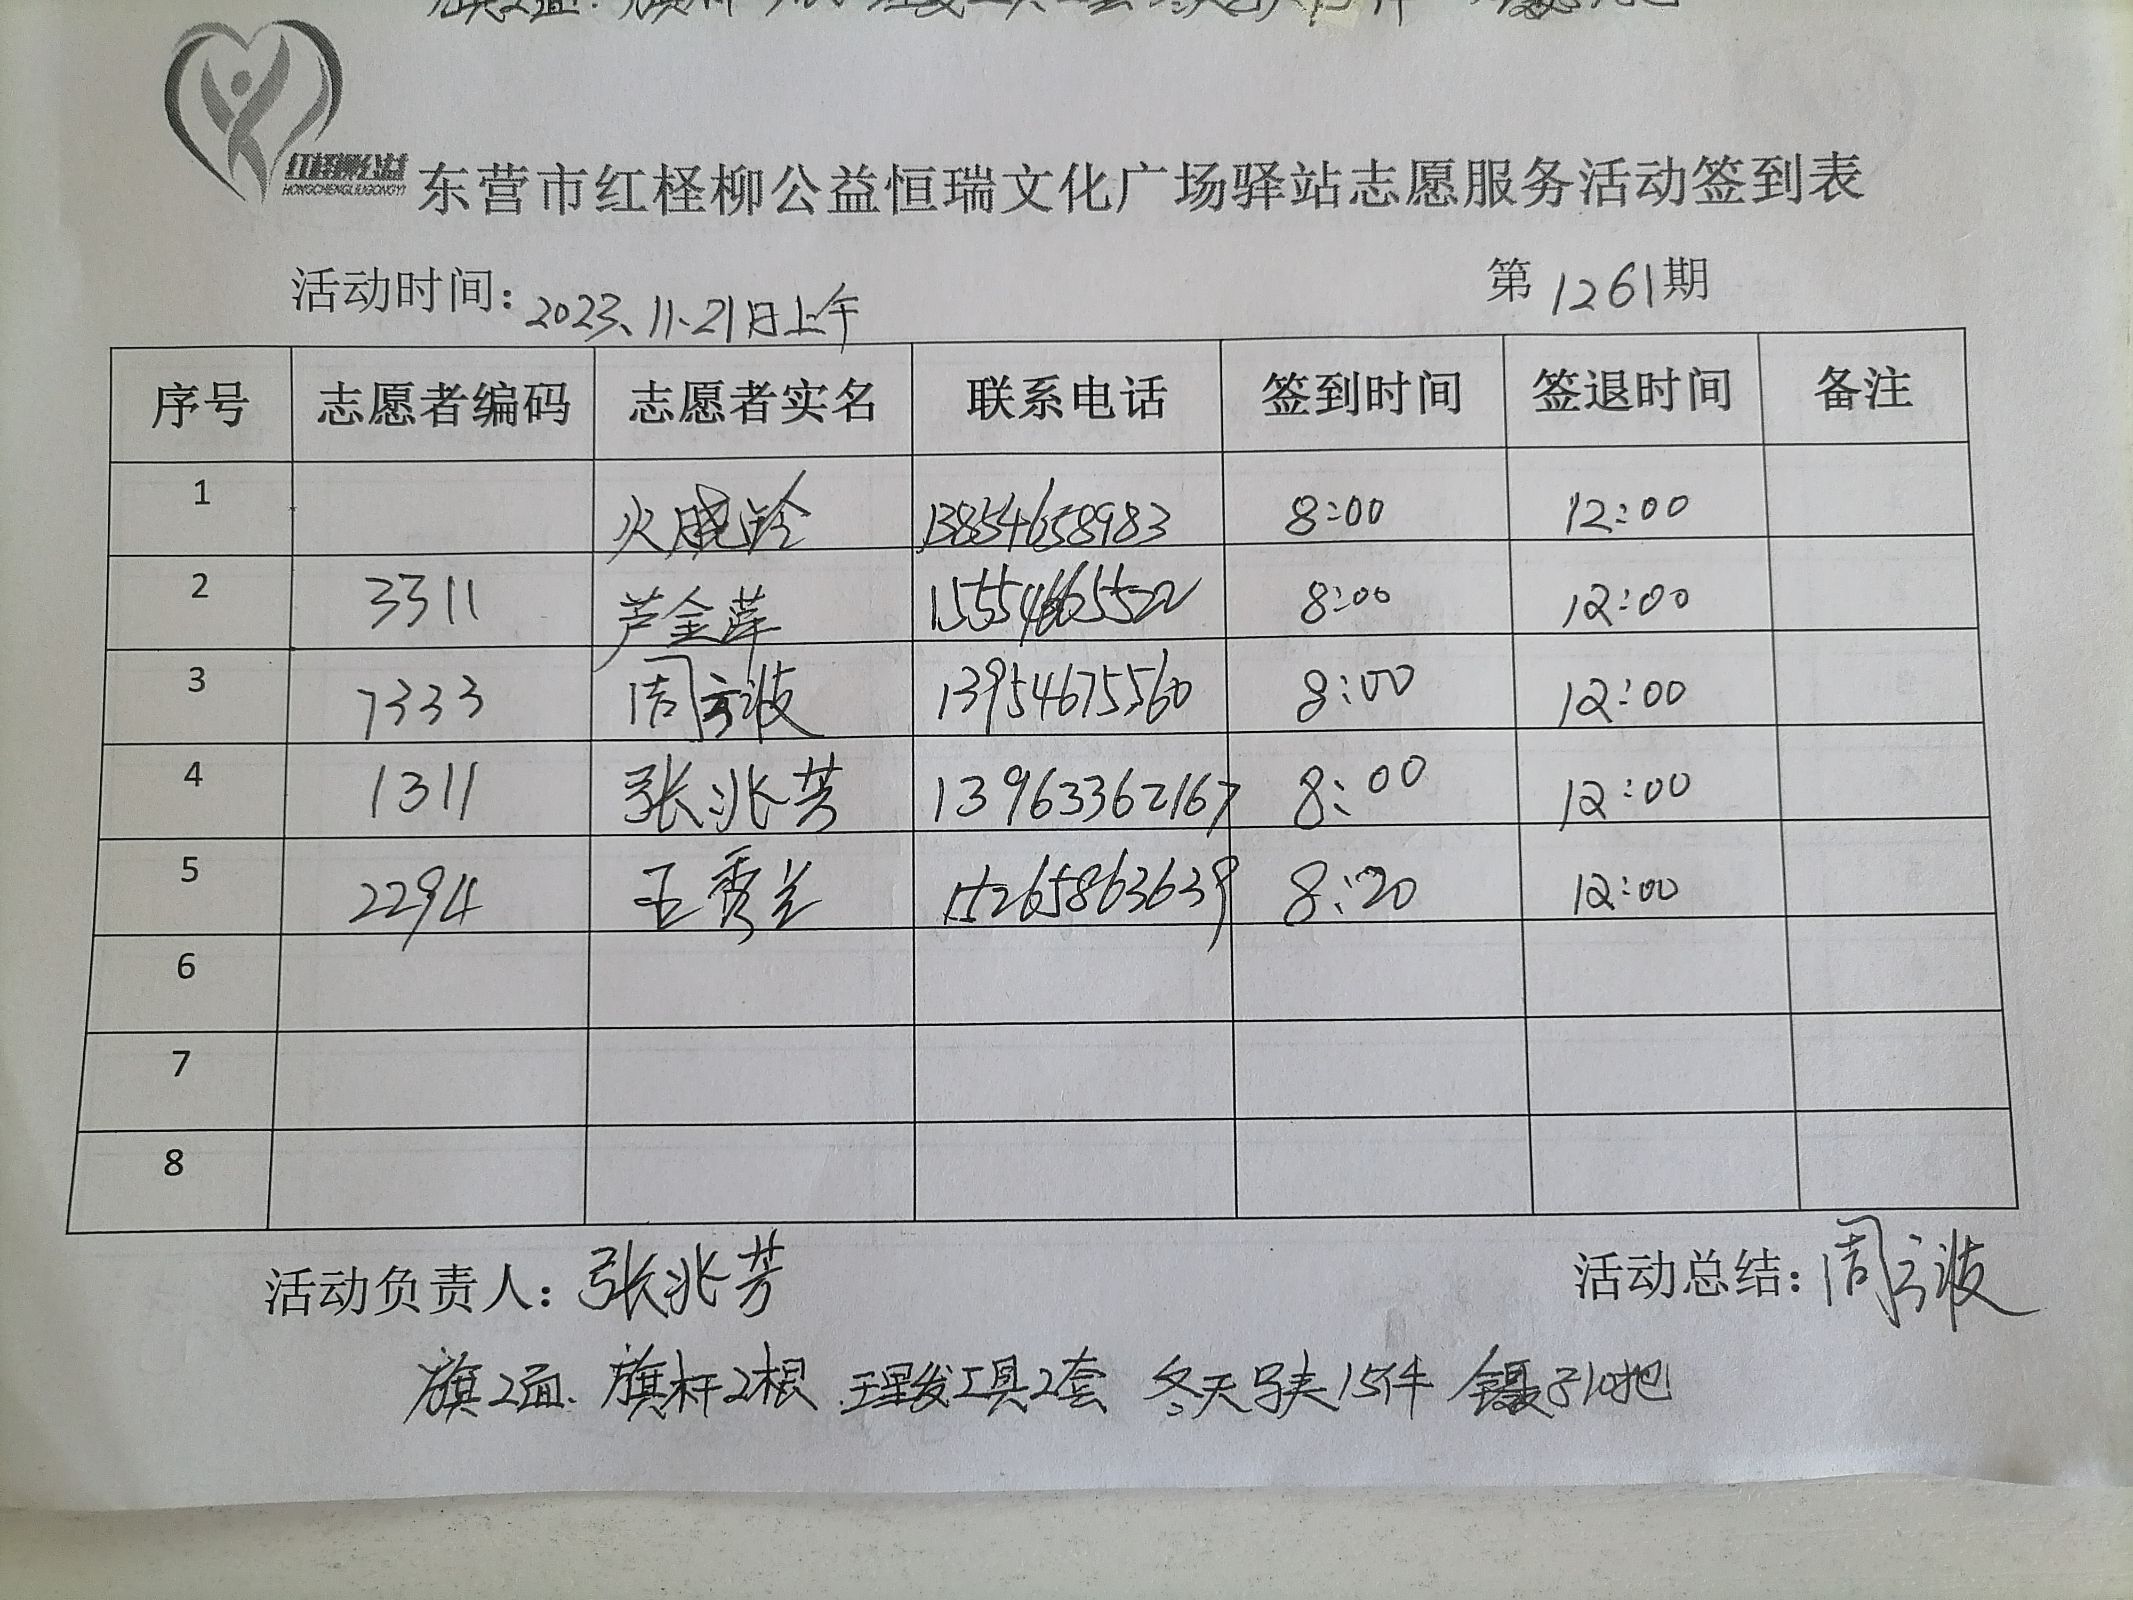 红柽柳公益
HONGCHENGLIUGONGYI
东营市红柽柳公益恒瑞文化广场驿站志愿服务活动签到表
活动时间：2023、11.21日上午 第1261期
序号 志愿者编码 志愿者实名 联系电话 签到时间 签退时间 备注
1 火晓玲 13854658983 8:00 12:00
2 3311 芦金萍 15554665522 8:00 12:00
3 7333 周云波 13954675560 8:00 12:00
4 1311 张兆芳 13963362167 8:00 12:00
5 2294 王秀兰 15265863639 8:20 12:00
6
7
8
活动负责人：张兆芳 活动总结：周云波
旗2面. 旗杆2根 理发工具2套 冬天马夹15件 镊子10把